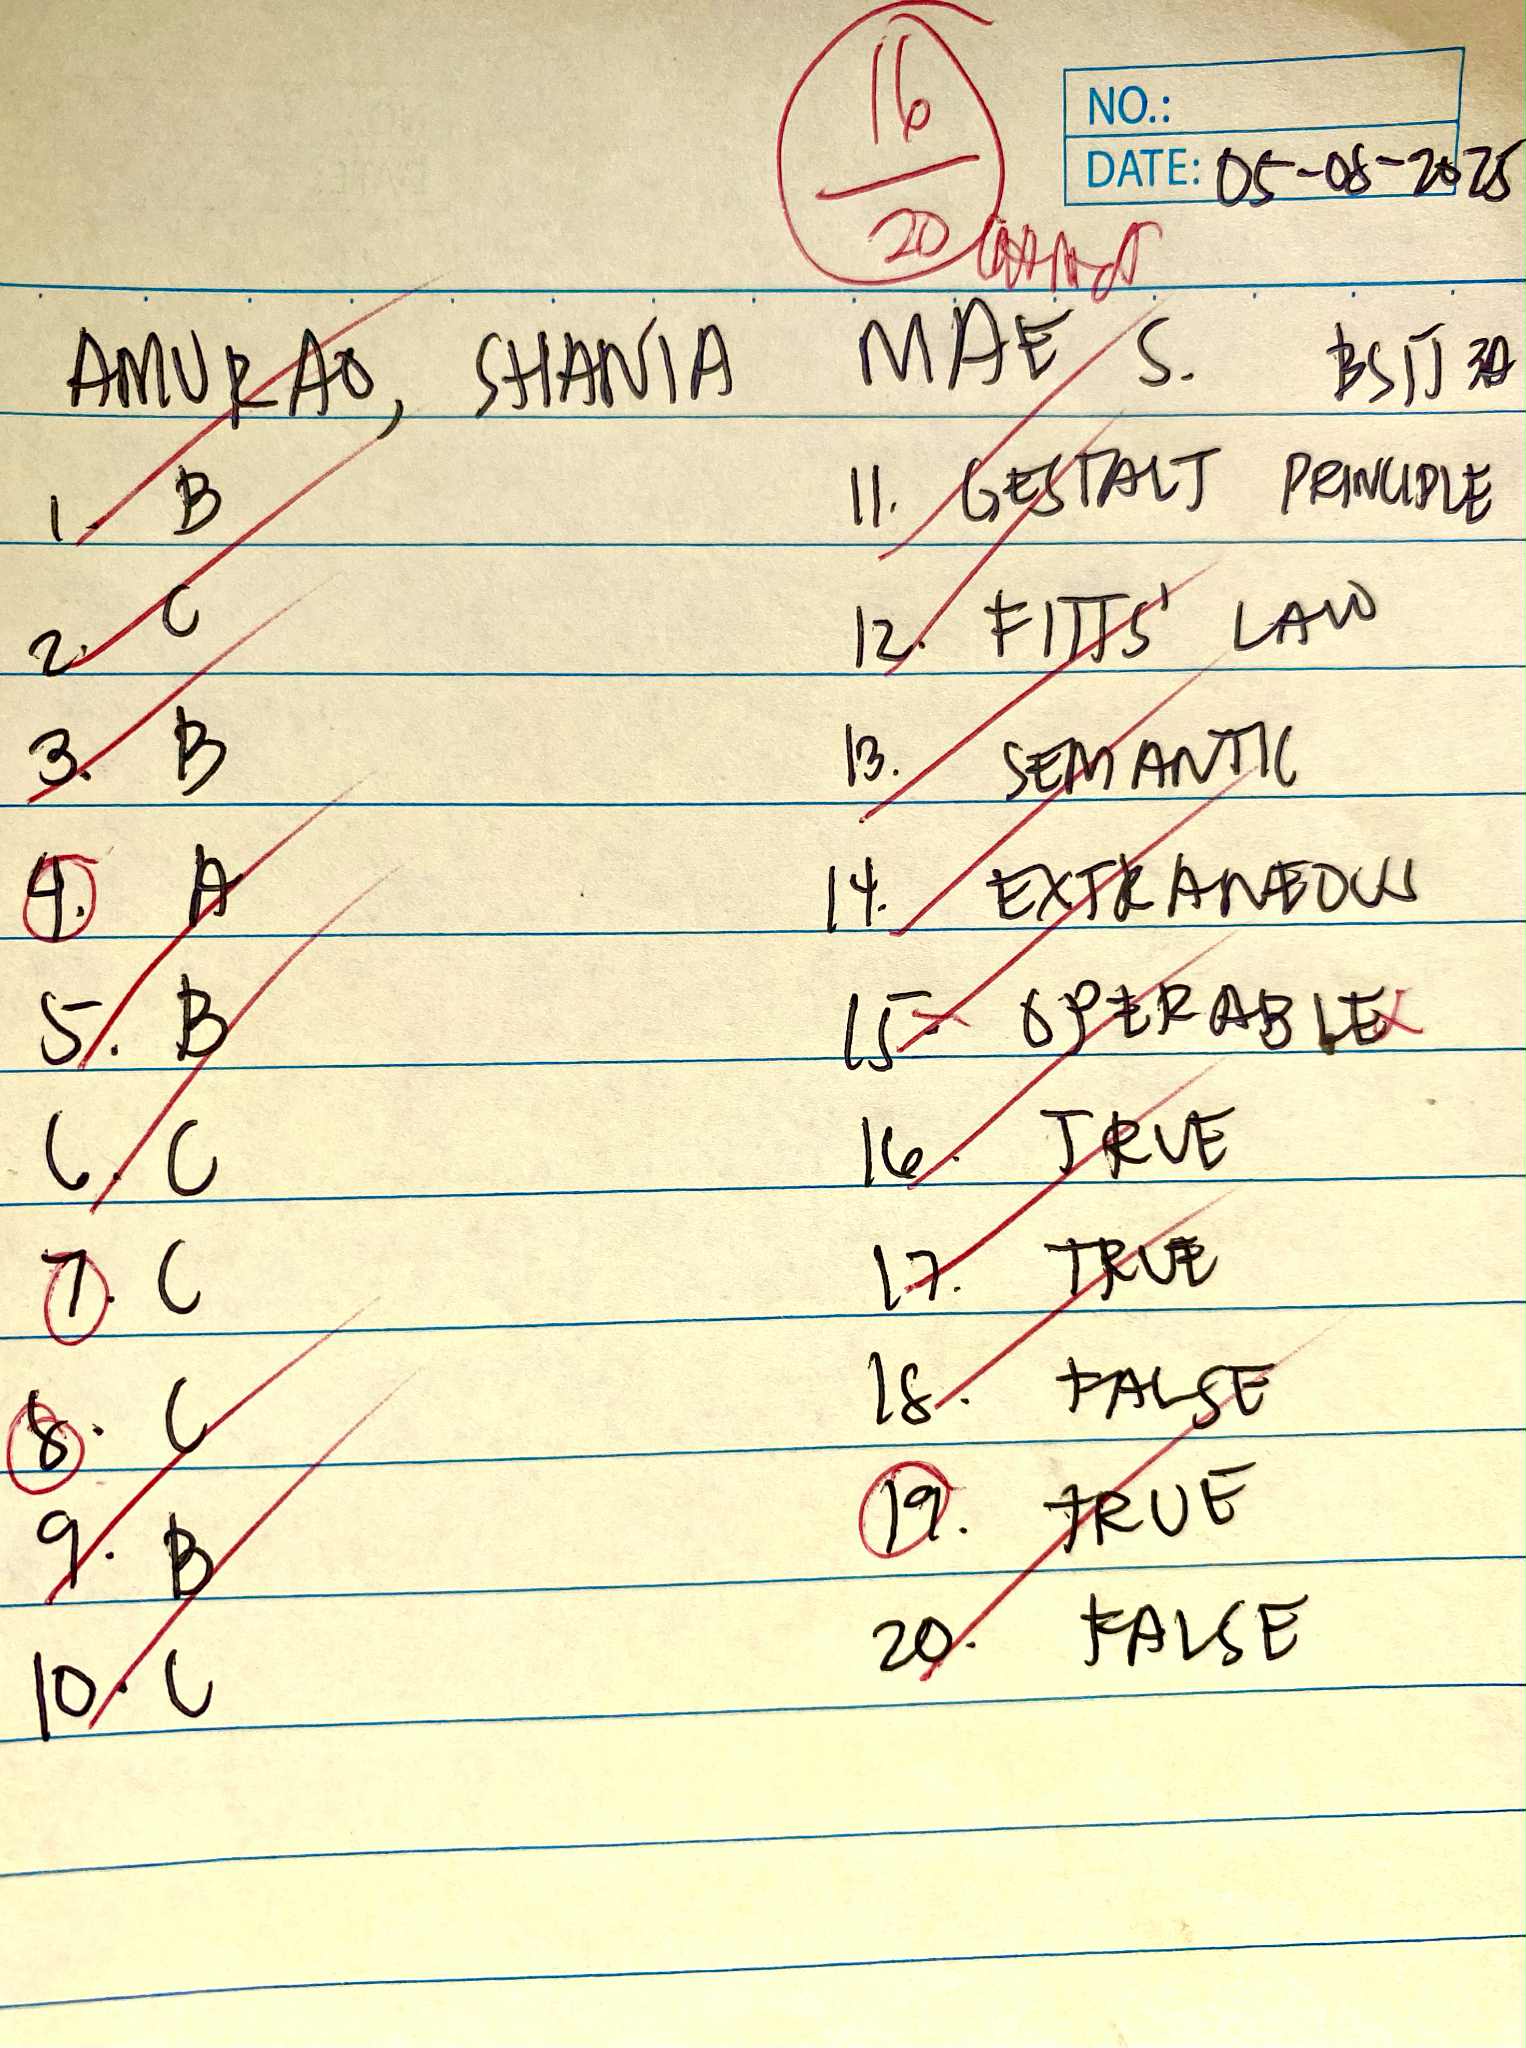 16
20
NO.:
DATE: 05-08-2025
AMURAO, SHANIA MAE S. BSIT 3A
1. B
2. C
3. B
4. A
5. B
6. C
7. C
8. C
9. B
10. C
11. GESTALT PRINCIPLE
12. FITTS' LAW
13. SEMANTIC
14. EXTRANEOUS
15. OPERABLE
16. TRUE
17. TRUE
18. FALSE
19. TRUE
20. FALSE